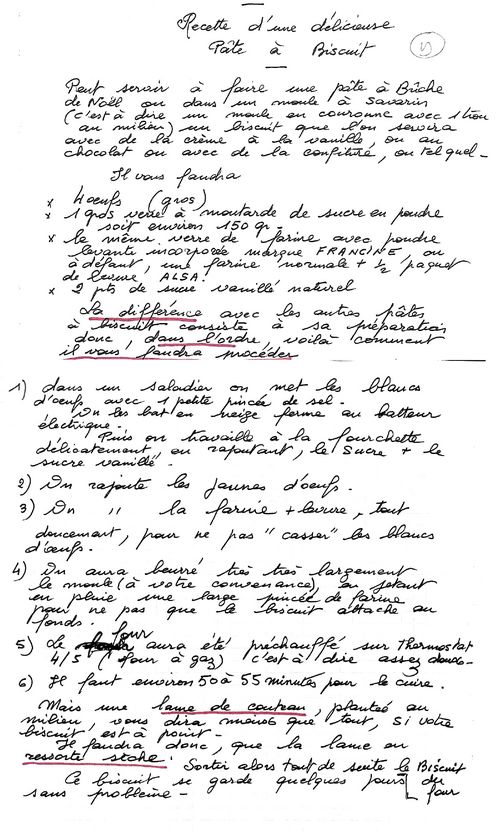 Recette d'une délicieuse
Pâte à Biscuit
Peut servir à faire une pâte à Bûche
de Noël ou dans un moule à Savarin
(c'est à dire un moule en couronne avec 1 trou
au milieu) un biscuit que l'on servira
avec de la crème à la vanille, ou au
chocolat ou avec de la confiture, ou tel quel -
Il vous faudra
x 4 oeufs (gros)
x 1 gros verre à moutarde de sucre en poudre
soit environ 150 gr -
x le même verre de farine avec poudre
levante incorporée marque FRANCINE, ou
à défaut, une farine normale + 1/2 paquet
de levure ALSA.
x 2 pts de sucre vanillé naturel
La différence avec les autres pâtes
à biscuit consiste à sa préparation
donc, dans l'ordre, voilà comment
il vous faudra procéder
1) dans un saladier on met les blancs
d'oeufs avec 1 petite pincée de sel -
On les bat en neige ferme au batteur
électrique -
Puis on travaille à la fourchette
délicatement, en rajoutant, le sucre + le
sucre vanillé -
2) On rajoute les jaunes d'oeufs.
3) On " la farine + levure, tout
doucement, pour ne pas "casser" les blancs
d'oeufs.
4) On aura beurré très très largement
le moule (à votre convenance), en jetant
en pluie une large pincée de farine
pour ne pas que le biscuit attache au
fonds.
5) Le four aura été préchauffé sur Thermostat
4/5 (four à gaz) c'est à dire assez doux -
6) Il faut environ 50 à 55 minutes pour le cuire.
Mais une lame de couteau, plantée au
milieu, vous dira mieux que tout, si votre
biscuit est à point -
Il faudra donc, que la lame en
ressorte sèche. Sortir alors tout de suite le Biscuit
du four
Ce biscuit se garde quelques jours
sans problème -